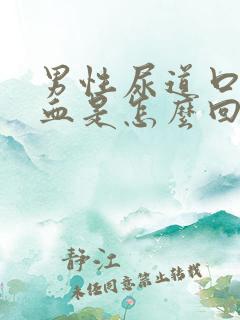 男性尿道口
血是怎麼回
静江
未经同意禁止转载